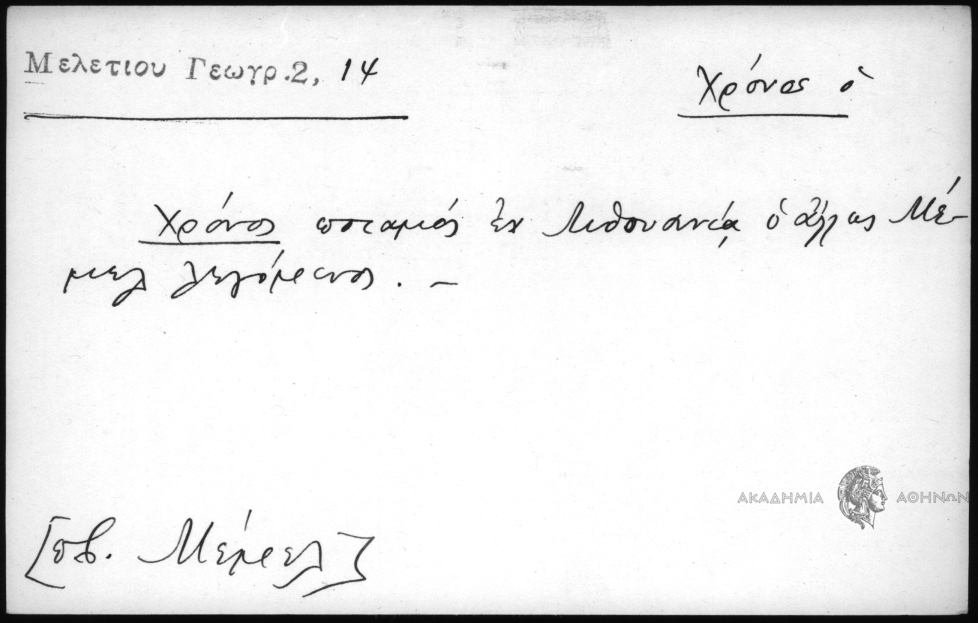 Μελετίου Γεωγρ.2, 14
Χρόνος ὁ
Χρόνος ποταμός ἐν Λιθουανίᾳ ὁ ἄλλως Μέ-
μελ λεγόμενος. –
ΑΚΑΔΗΜΙΑ ΑΘΗΝΩΝ
[πβ. Μέμελ]